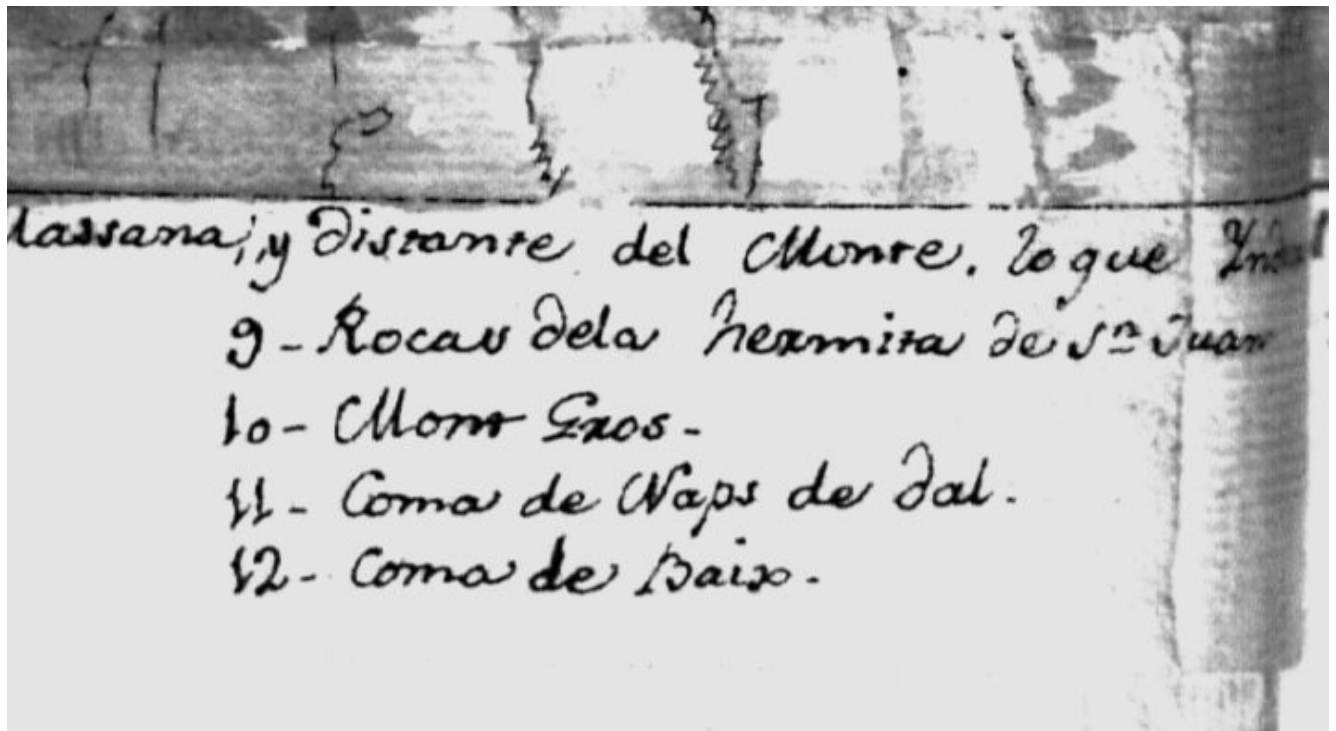 lassana, y distante del Monte. lo que
9 - Rocas dela hermita de Sn Juan
10 - Mont Gros -
11 - Coma de Naps de dal.
12 - Coma de Baix.